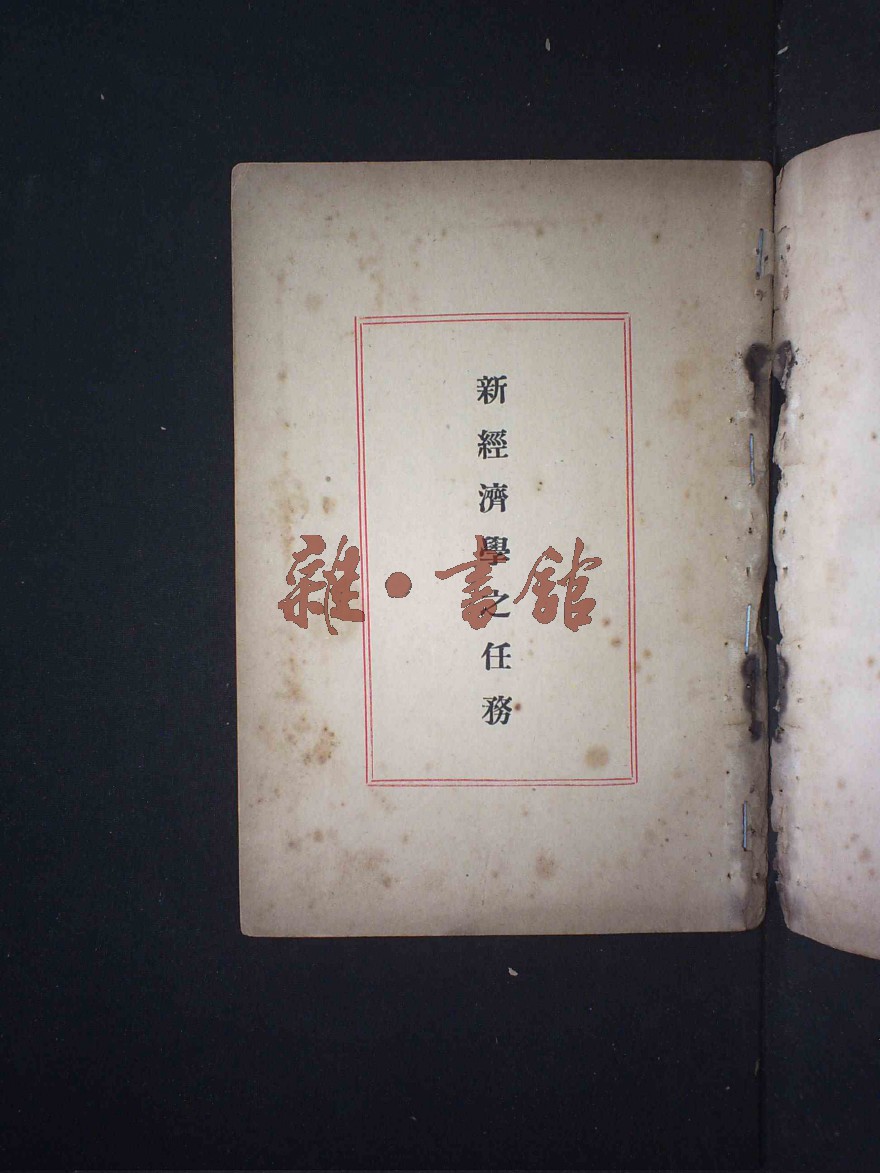 新經濟學之任務
雜·書館